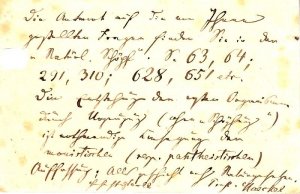 Die Antwort auf die von Ihnen
gestellten Fragen finden Sie in der
"Natürl. Schöpf." S. 63, 64;
291, 310; 628, 651 etc.
Die Entstehung der ersten Organismen
durch Urzeugung (ohne "Schöpfung")
ist nothwendige Consequenz der
monistischen (resp. pantheistischen)
Auffassung:
Haeckel